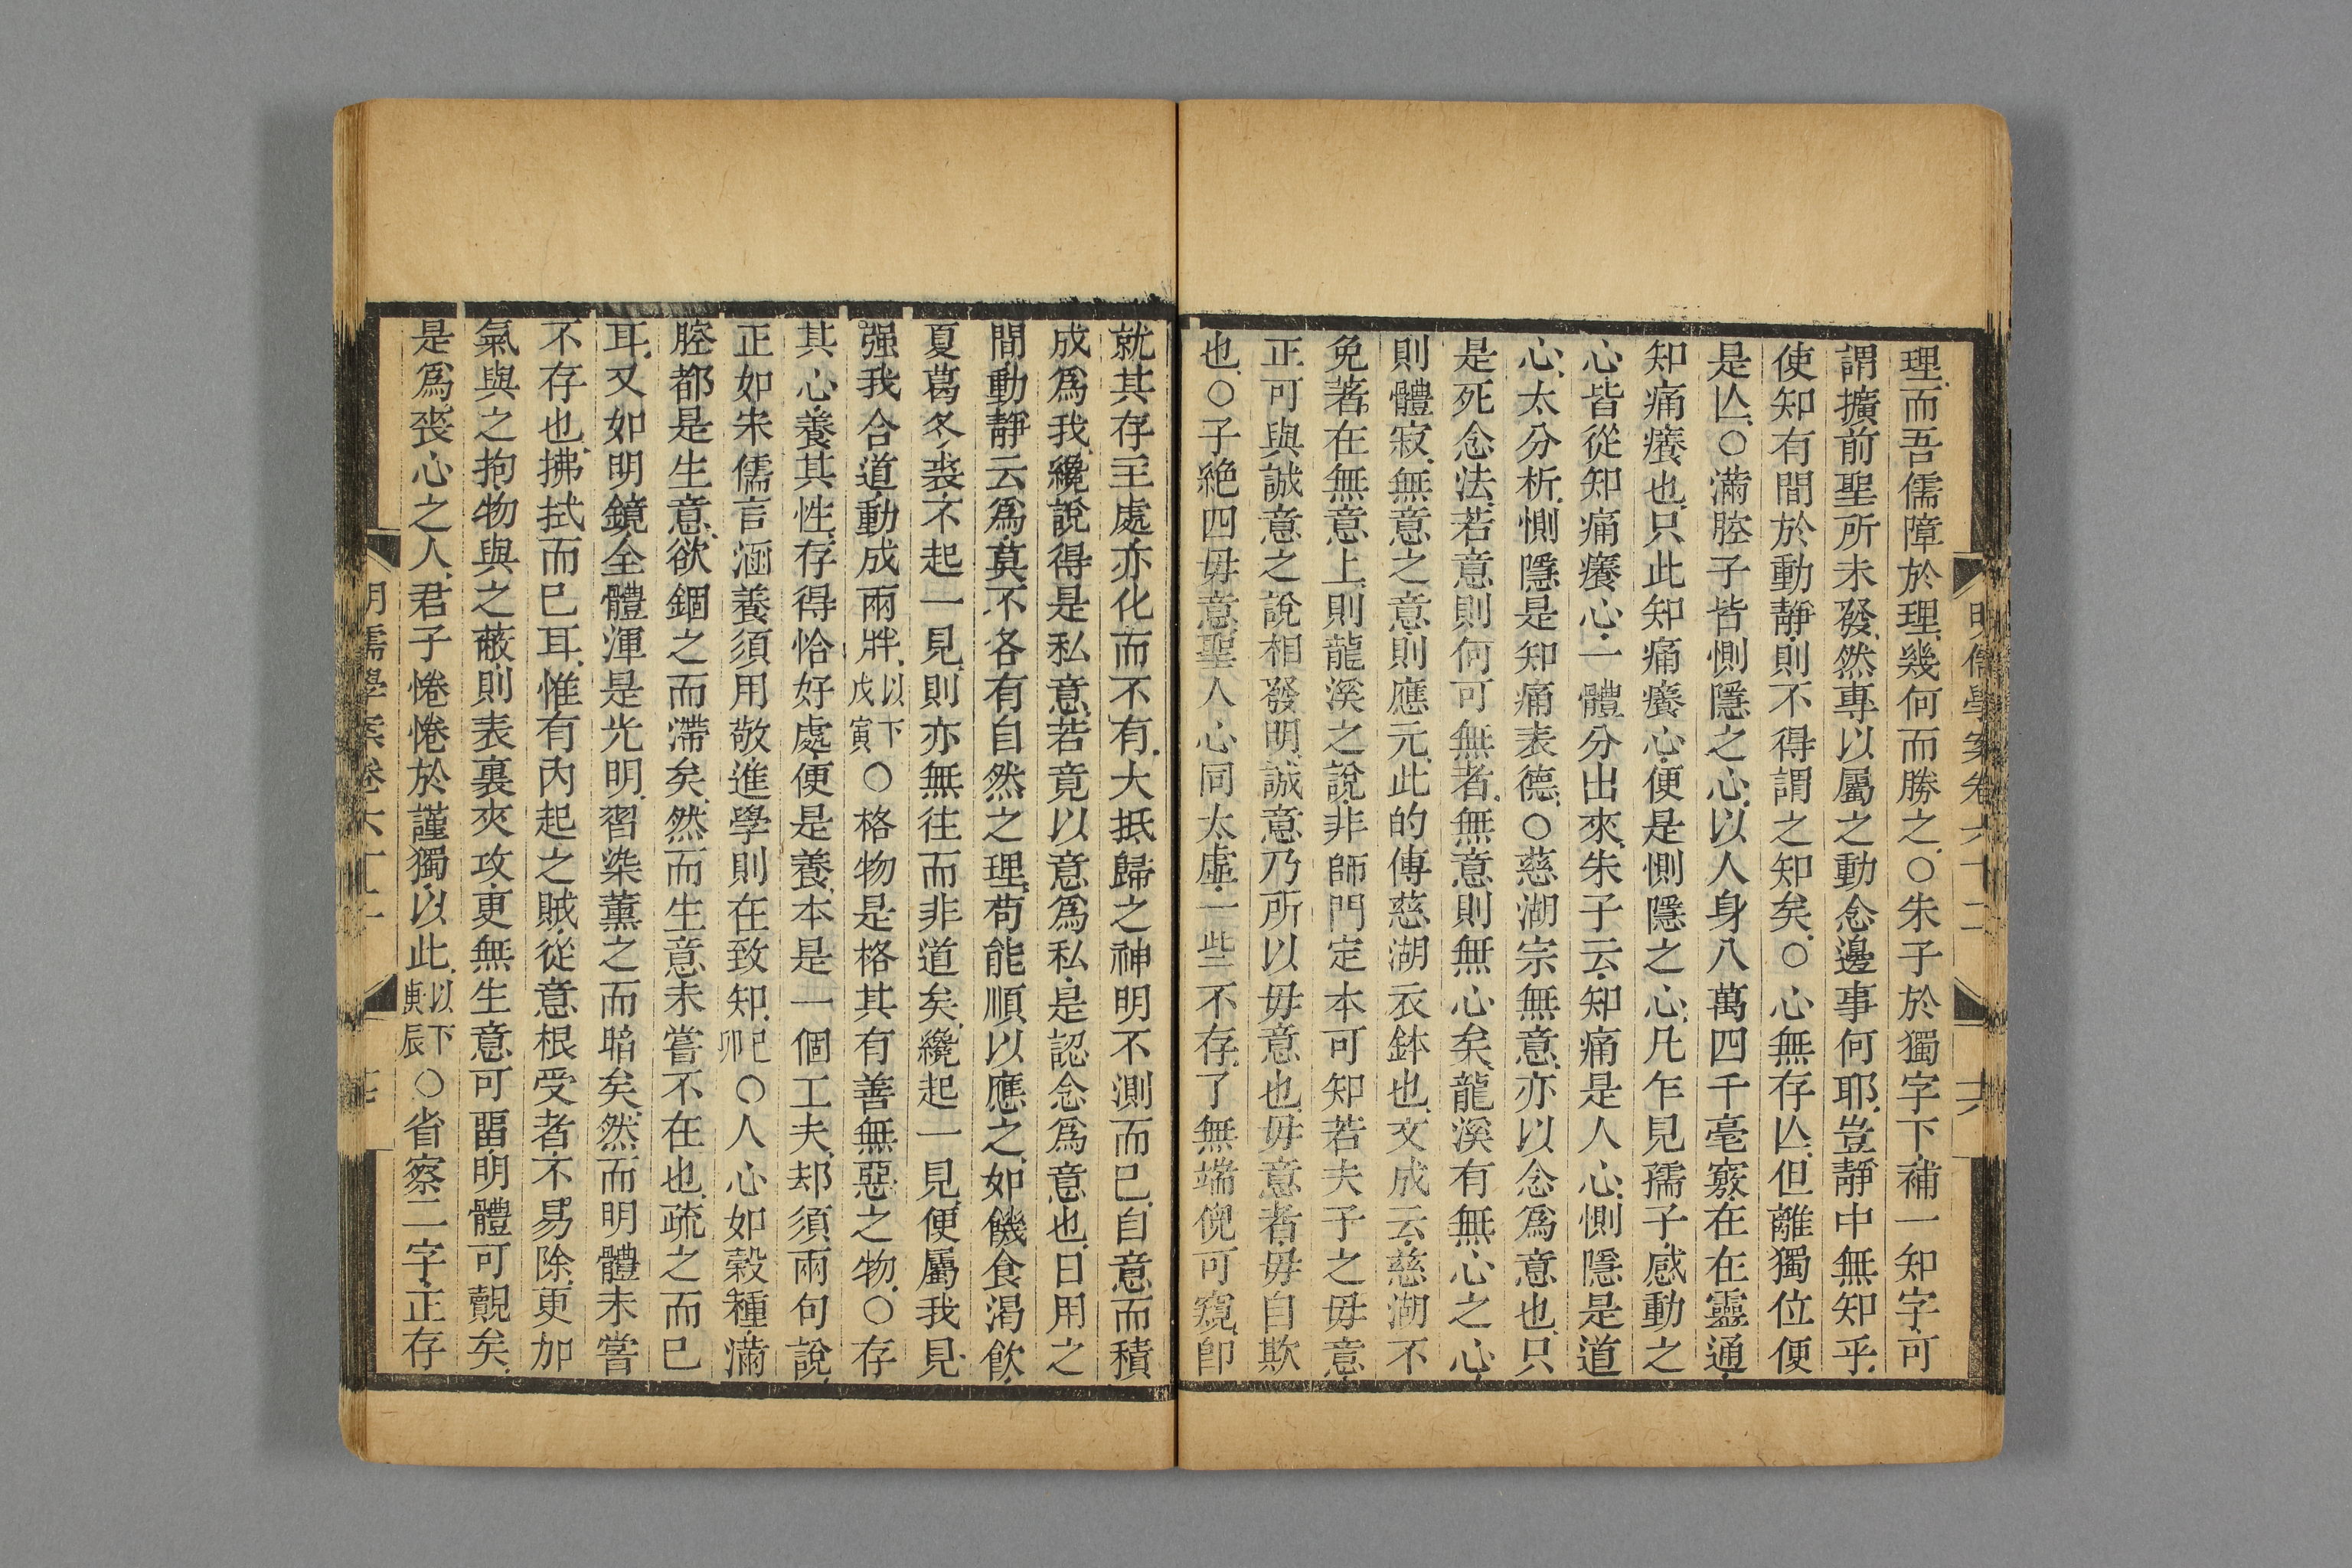 明儒學案卷六十二
十六
理而吾儒障於理幾何而勝之○朱子於獨字下補一知字可
謂擴前聖所未發然專以屬之動念邊事何耶豈靜中無知乎
使知有間於動靜則不得謂之知矣○心無存亾但離獨位便
是亾○滿腔子皆惻隱之心以人身八萬四千毫竅在在靈通
知痛癢也只此知痛癢心便是惻隱之心凡乍見孺子感動之
心皆從知痛癢心一體分出來朱子云知痛是人心惻隱是道
心太分析惻隱是知痛表德○慈湖宗無意亦以念爲意也只
是死念法若意則何可無者無意則無心矣龍溪有無心之心
則體寂無意之意則應元此的傳慈湖衣鉢也文成云慈湖不
免著在無意上則龍溪之說非師門定本可知若夫子之毋意
正可與誠意之說相發明誠意乃所以毋意也毋意者毋自欺
也○子絕四毋意聖人心同太虛一些不存了無端倪可窺卽
就其存主處亦化而不有大抵歸之神明不測而已自意而積
成爲我纔說得是私意若竟以意爲私是認念爲意也日用之
間動靜云爲莫不各有自然之理苟能順以應之如饑食渴飮
夏葛冬裘不起一見則亦無往而非道矣纔起一見便屬我見
强我合道動成兩牉以下戊寅○格物是格其有善無惡之物○存
其心養其性存得恰好處便是養本是一個工夫却須兩句說
正如朱儒言涵養須用敬進學則在致知己卯○人心如穀種滿
腔都是生意欲錮之而滯矣然而生意未嘗不在也疏之而已
耳又如明鏡全體渾是光明習染薰之而暗矣然而明體未嘗
不存也拂拭而已耳惟有內起之賊從意根受者不易除更加
氣與之抱物與之蔽則表裏夾攻更無生意可留明體可覿矣
是爲喪心之人君子惓惓於謹獨以此以下庚辰○省察二字正存
明儒學案卷六十二